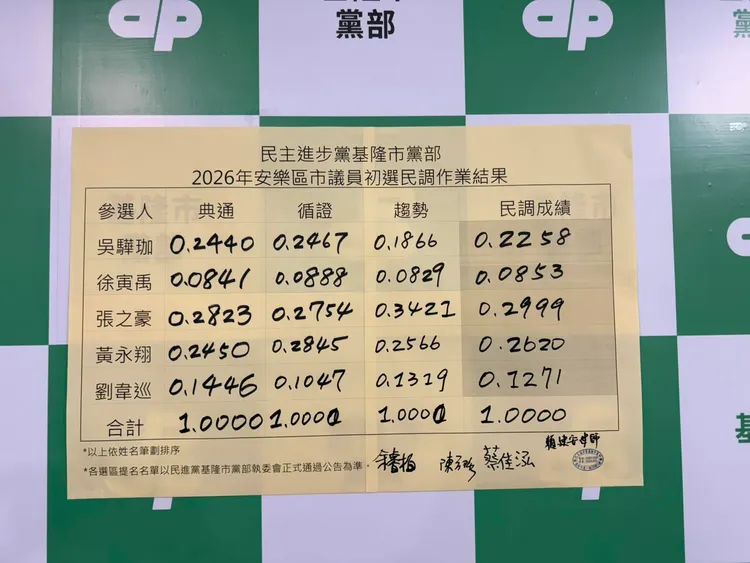 黨部
民主進步黨基隆市黨部
2026年安樂區市議員初選民調作業結果
參選人 典通 循證 趨勢 民調成績
吳驊珈 0.2440 0.2467 0.1866 0.2258
徐寅禹 0.0841 0.0888 0.0829 0.0853
張之豪 0.2823 0.2754 0.3421 0.2999
黃永翔 0.2450 0.2845 0.2566 0.2620
劉韋巡 0.1446 0.1047 0.1319 0.1271
合計 1.0000 1.0000 1.0000 1.0000
*以上依姓名筆劃排序
*各選區提名名單以民進黨基隆市黨部執委會正式通過公告為準。
蔡佳泓
基